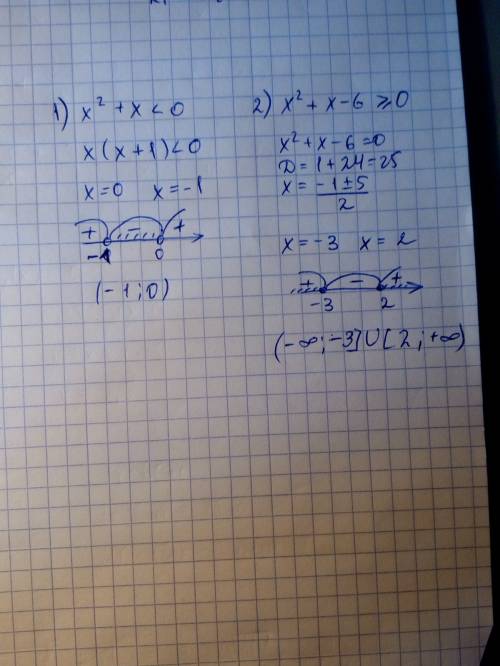 1) x² + x < 0
x(x+1) < 0
x=0 x=-1
+ - +
-1 0
(-1; 0)
2) x² + x - 6 ⩾ 0
x² + x - 6 = 0
D = 1 + 24 = 25
x = (-1 ± 5)/2
x = -3 x = 2
+ - +
-3 2
(-∞; -3] U [2; +∞)